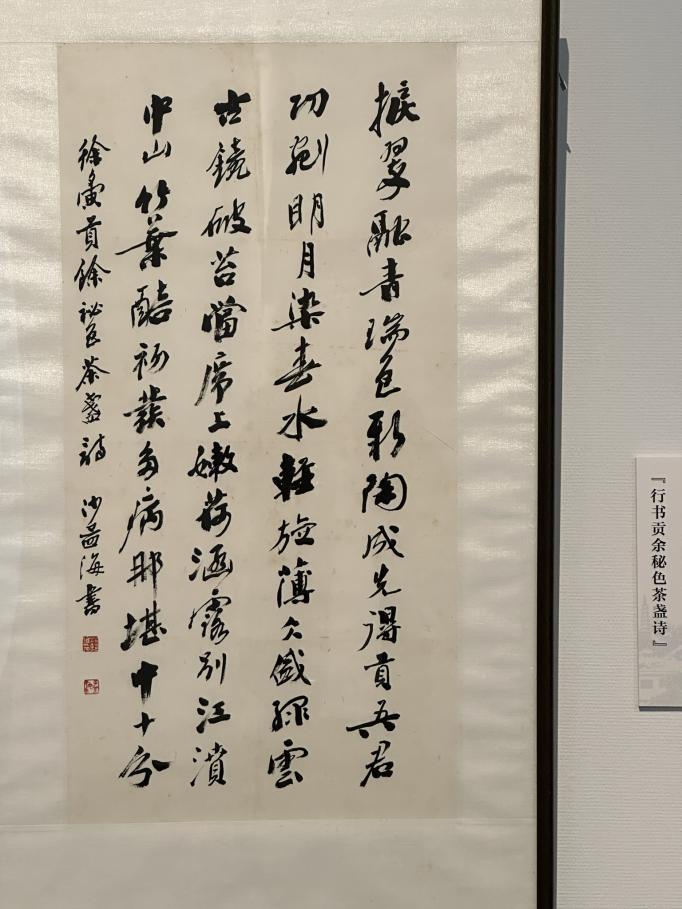 捩翠融青瑞色新陶成先得貢吾君
功剜明月染春水輕旋薄冰盛綠雲
古鏡破苔當席上嫩荷涵露別江濆
中山竹葉醅初發多病那堪中十分
徐夤貢餘祕色茶盞詩 沙孟海書
『行书贡余秘色茶盏诗』